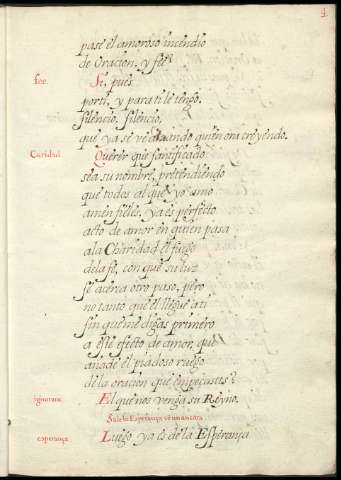 pase el amoroso incendio
de Oracion, y fee
fee. Si, pues
por ti, y para ti le tengo.
silencio, silencio,
que ya se ve amando quien ora creyendo.
Caridad Querer que santificado
sea su nombre, pretendiendo
que todos al que yo amo
amen fieles, ya es perfecto
acto de amor en quien pasa
a la Charidad el fuego
de la fe, con que su luz
se acerca otro paso, pero
no tanto que el llegue a ti
sin que me digas primero
a esse efecto de amor, que
añade el piadoso ruego
de la oracion que empeçaste?
ignoran. El que nos venga su Reyno.
Sale la Esperança con un ancora
esperança Luego ya es de la Esperança